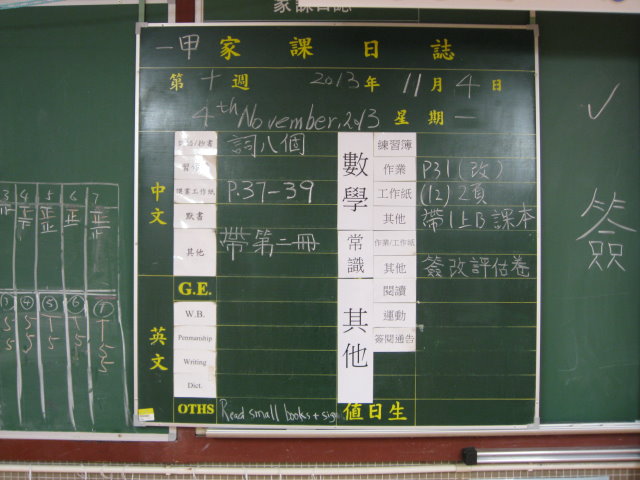 家課日誌
一甲家課日誌
第十週 2013年 11月 4日
4th November, 2013 星期一
中文
詞八個
習作
課書工作紙 P.37-39
默書
其他 帶第二冊
英文
G.E.
W.B.
Penmanship
Writing
Dict.
OTHS Read small books + sign
數學
練習簿
作業 P31(改)
工作紙 (12) 2頁
其他 帶1上B課本
常識
作業/工作紙
其他 簽改評估卷
其他
閱讀
運動
簽閱通告
值日生
簽
3 4 5 6 7
正 正 正 正 正
正 正 正 正
3 4 5 6 7
5 5 5 5
5 5 5 5 5
5